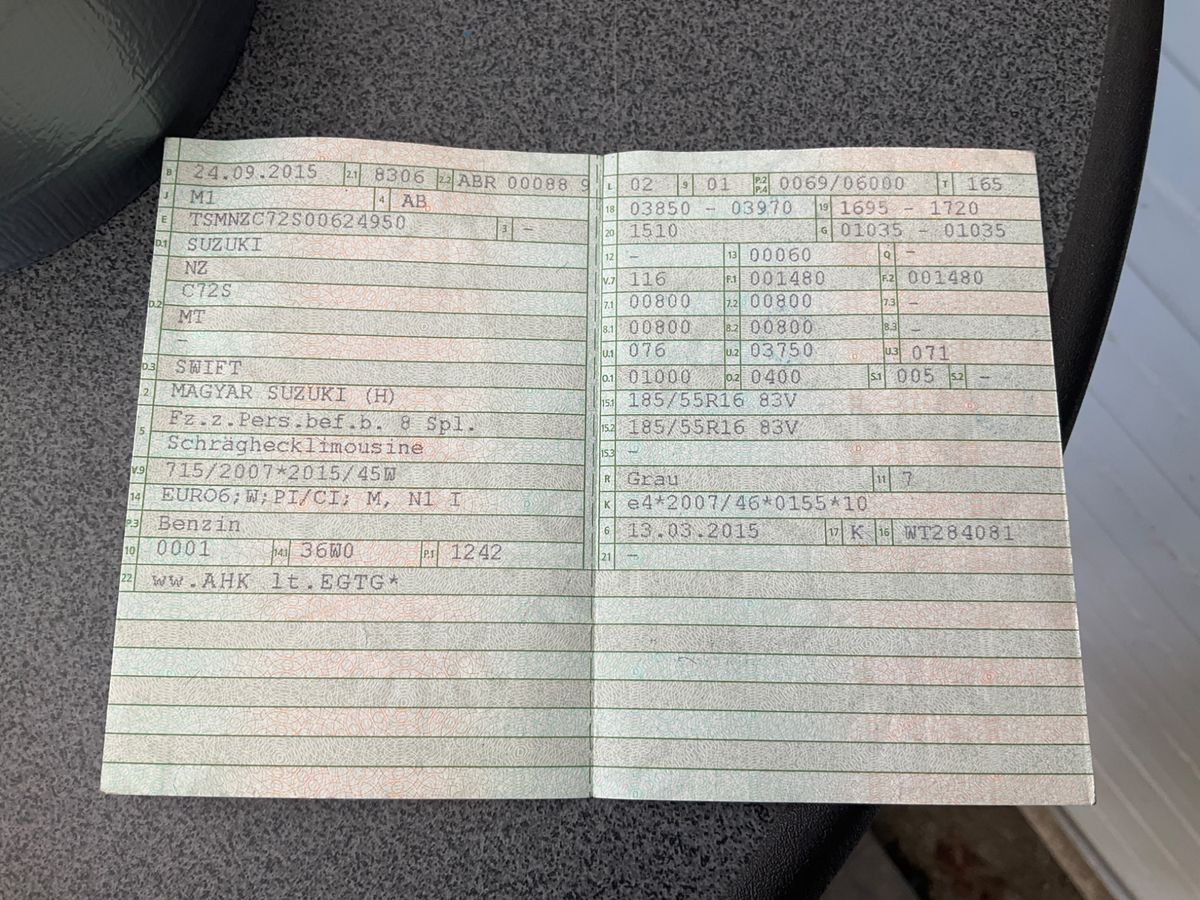 B 24.09.2015 2.1 8306 2.2 ABR 00088 9
J M1 4 AB
E TSMNZC72S00624950 3 -
D.1 SUZUKI
NZ
D.2 C72S
MT
-
D.3 SWIFT
2 MAGYAR SUZUKI (H)
5 Fz.z.Pers.bef.b. 8 Spl.
Schräghecklimousine
V.9 715/2007*2015/45W
14 EURO6;W;PI/CI; M, N1 I
P.3 Benzin
10 0001 14.1 36W0 P.1 1242
22 ww.AHK lt.EGTG*
L 02 9 01 P.2 P.4 0069/06000 T 165
18 03850 - 03970 19 1695 - 1720
20 1510 G 01035 - 01035
12 - 13 00060 Q -
V.7 116 F.1 001480 F.2 001480
7.1 00800 7.2 00800 7.3 -
8.1 00800 8.2 00800 8.3 -
U.1 076 U.2 03750 U.3 071
O.1 01000 O.2 0400 S.1 005 S.2 -
15.1 185/55R16 83V
15.2 185/55R16 83V
15.3 -
R Grau 11 7
K e4*2007/46*0155*10
6 13.03.2015 17 K 16 WT284081
21 -